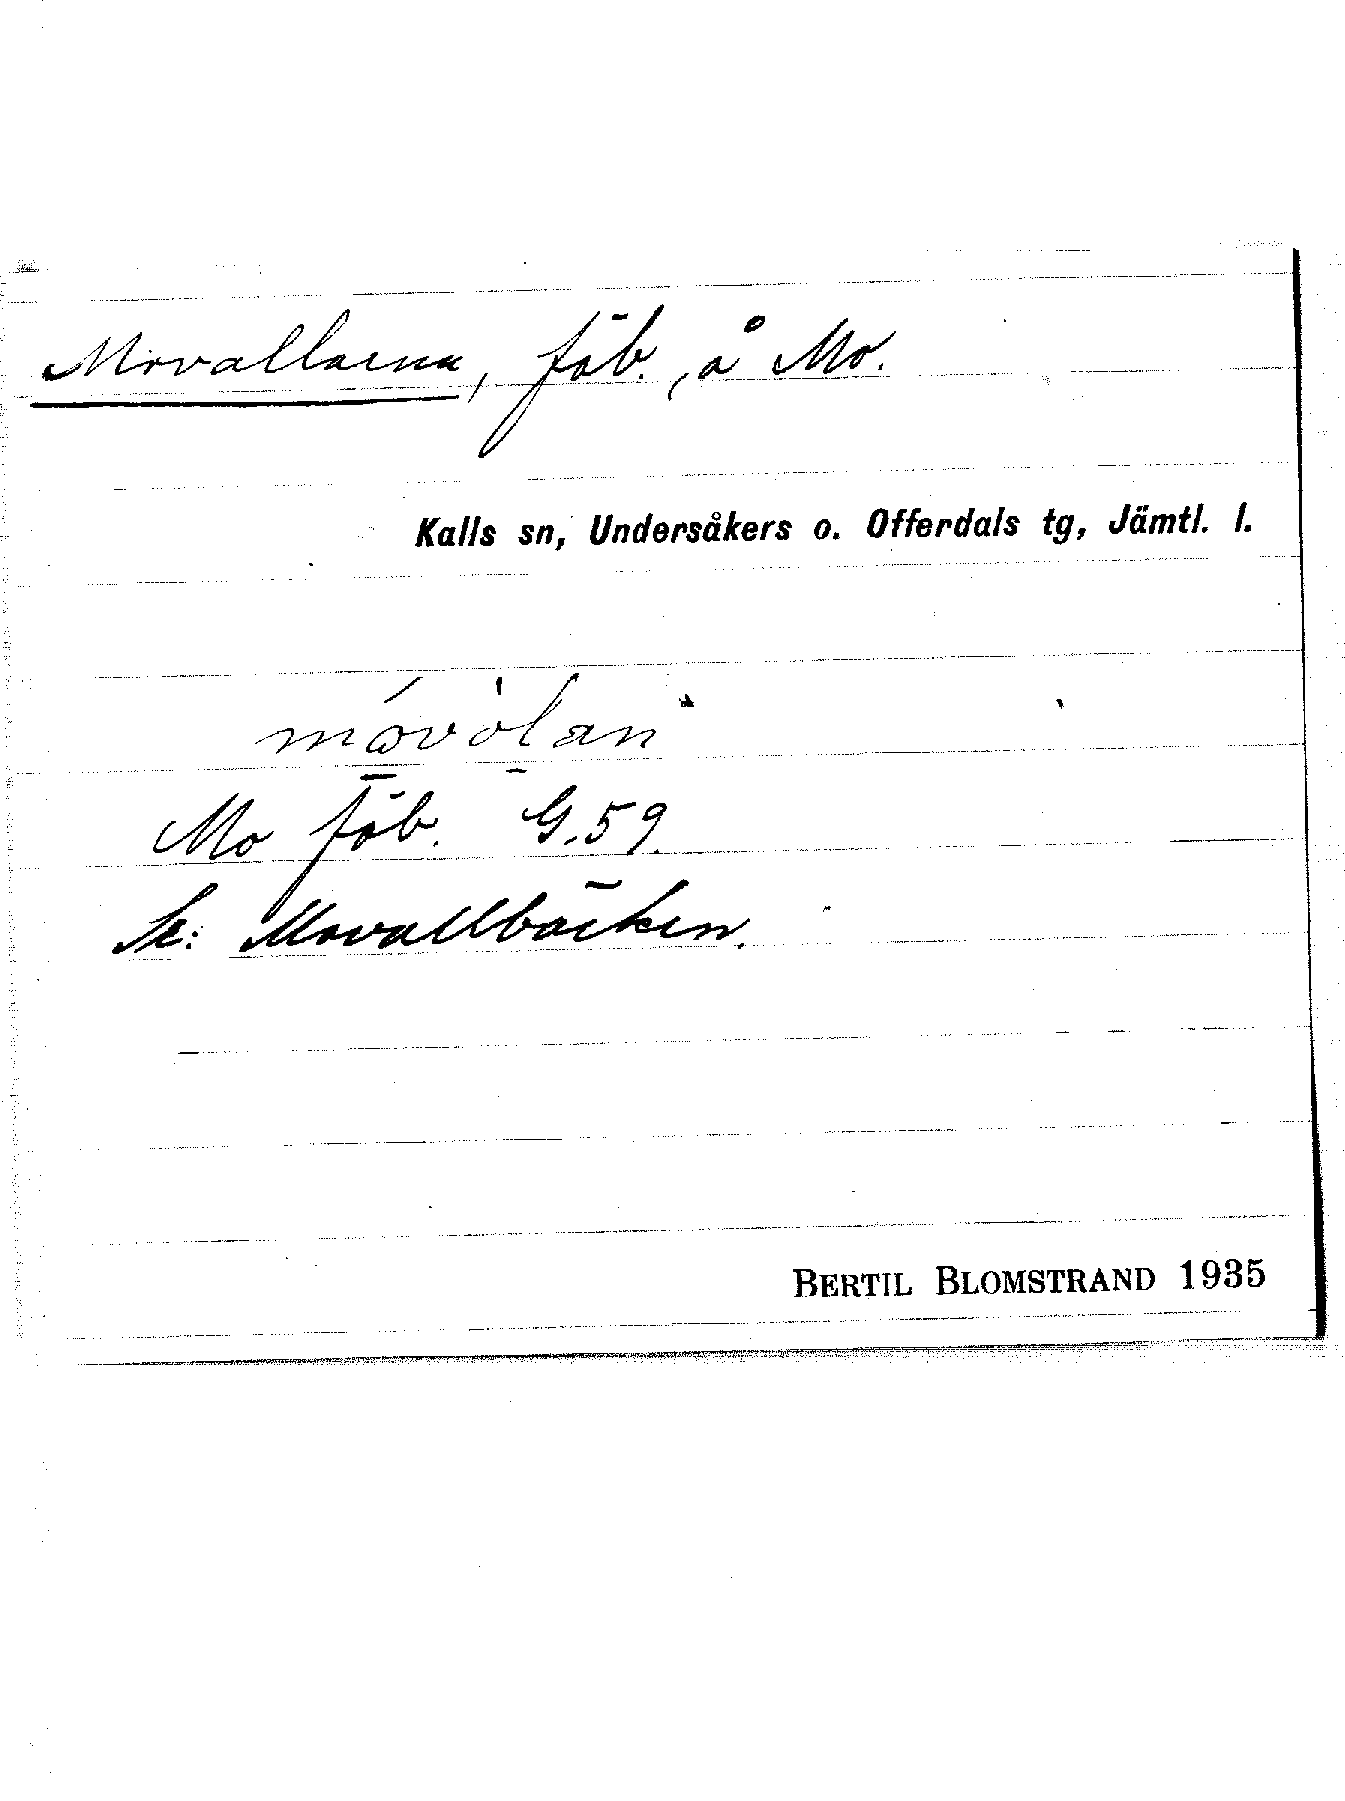 Movallarna, fäb., å Mo.
Kalls sn, Undersåkers o. Offerdals tg, Jämtl. l.
móvòlan
Mo fäb. G.59.
Se: Movallbäcken.
BERTIL BLOMSTRAND 1935